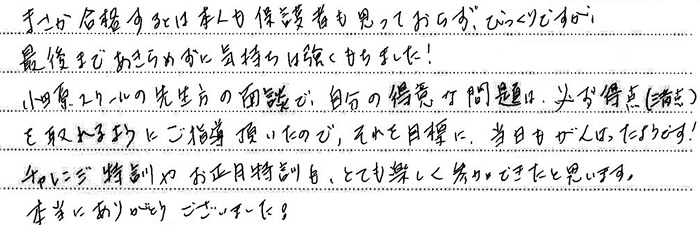 まさか合格するとは本人も保護者も思っておらず、びっくりですが、
最後まであきらめずに気持ちは強くもちました！
小田原スクールの先生方の面談で、自分の得意な問題は、必ず得点(満点)
を取れるようにご指導頂いたので、それを目標に、当日もがんばったようです！
チャレンジ特訓やお正月特訓も、とても楽しく参加できたと思います。
本当にありがとうございました。